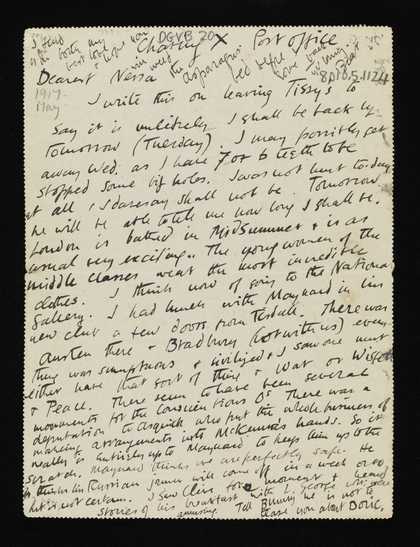 DGVB 20
Charing X Post office
Dearest Nessa
8010.5.1124
1917-
May
I write this on leaving Tissy's to
say it is unlikely I shall be back by
tomorrow (Tuesday). I may possibly get
away Wed. as I have 7 or 6 teeth to be
stopped some big holes. I was not hurt to-day
at all & daresay shall not be. Tomorrow
he will be able to tell me how long I shall be.
London is bathed in Midsummer & is as
usual very exciting. The young women of the
middle classes wear the most incredible
clothes. I think now of going to the National
Gallery. I had lunch with Maynard in his
new club a few doors from Tisdall. There was
Austen there & Bradbury (not with us) every-
thing was sumptuous & civilized & I saw one must
either have that sort of thing & War or Wissett
& Peace. There seem to have been several
movements for the Conscientious Os There was a
deputation to Asquith who put the whole business of
making arrangements into McKenna's hands. So it
really is entirely up to Maynard to keep them up to the
scratch. Maynard thinks we are perfectly safe. He
thinks the Russian James will come off in a week or so
but is not certain. I saw Clive for a moment & heard
stories of his breakfast with L. George who were
amusing. Tell Bunny he is not to
tease you about Doric.